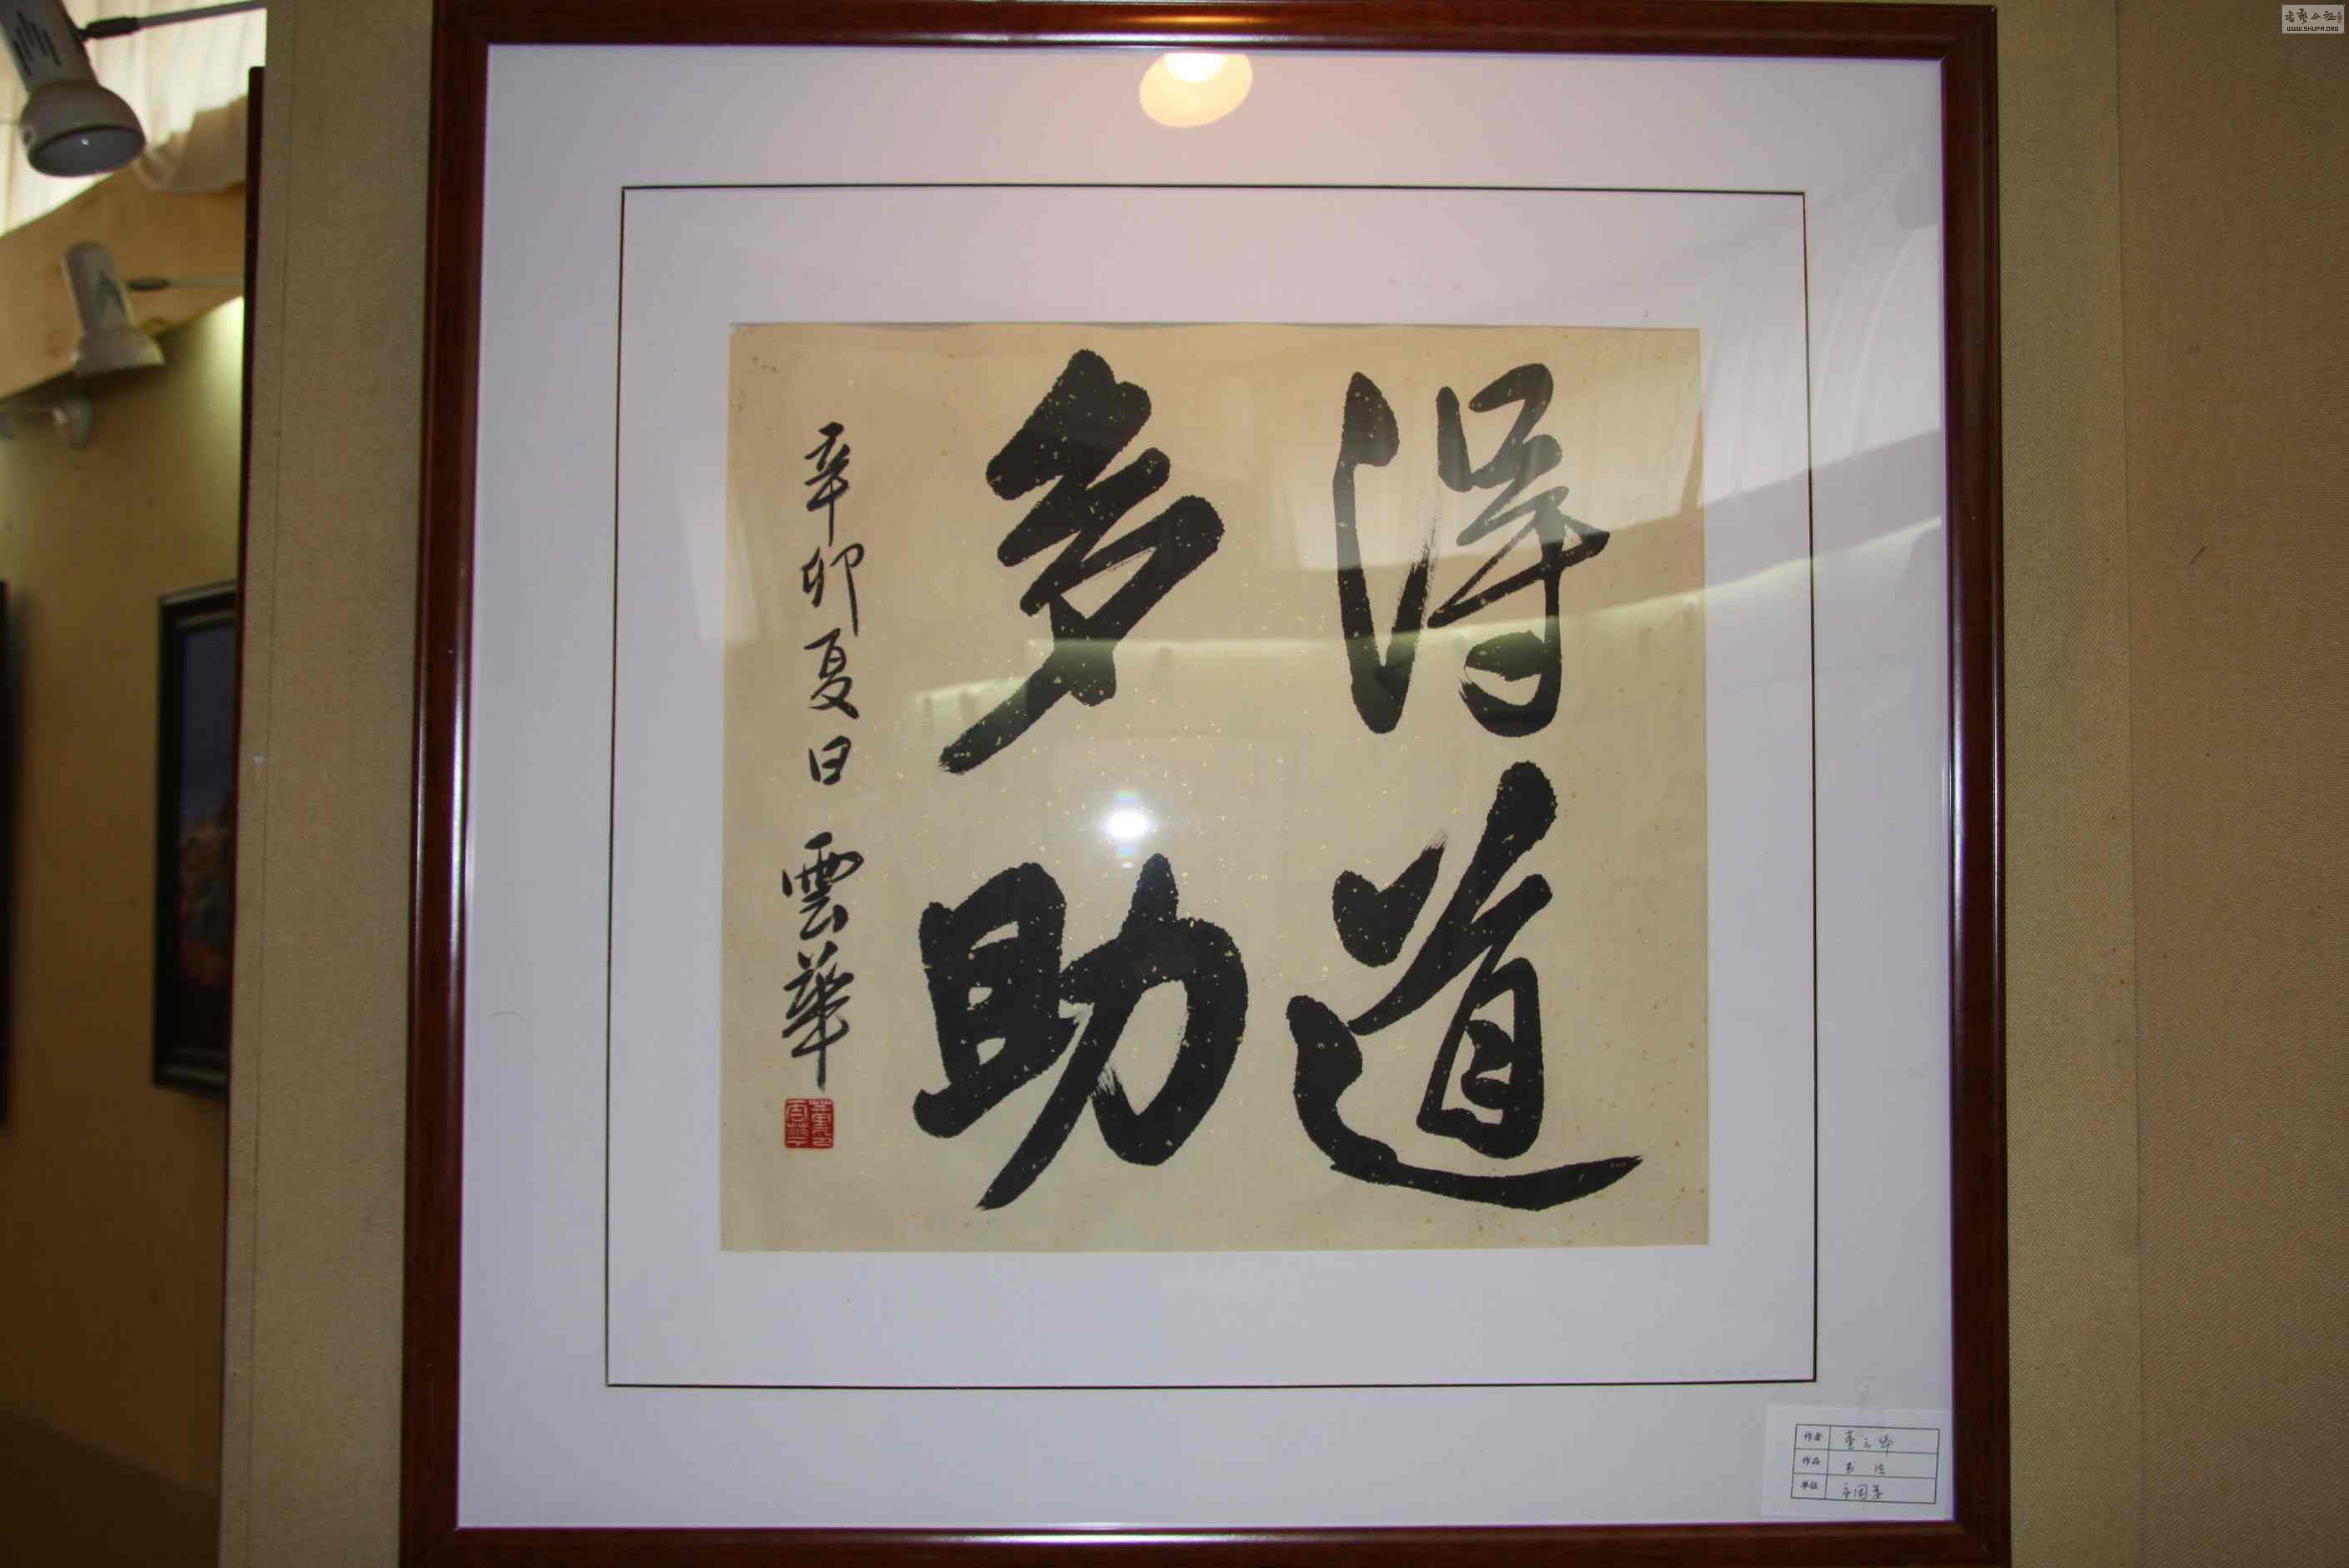 得道
多助
辛卯夏日 雲華
作者 董云华
作品 书法
单位
WWW.SHUFA.ORG